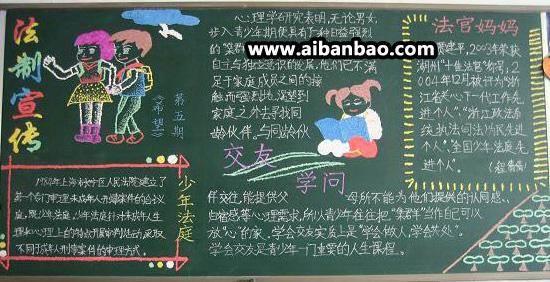 法制宣传
《希望》
第五期
心理学研究表明,无论男女,
步入青少年期便具有了种日益强烈
自主与独立意识的发展,他们已不满
足于家庭成员之间的接
触,而强烈地渴望到
家庭之外去寻找同
龄伙伴,与同龄伙
交友
学问
伴交往,能提供父母所不能为他们提供的认同感、
归宿感等心理需求,所以青少年往往把“集群”当作自己可以
放“心”的家。学会交友实质上是“学会做人,学会共处”。
学会交友是青少年一门重要的人生课程。
www.aibanbao.com
少年法庭
1984年上海长宁区人民法院建立了
第一个专门审理未成年人刑事案件的合议
庭,既少年法庭,少年法庭针对未成年人生
理和心理上的特点开展审判活动,采取
不同于成年人刑事案件的审理方式。
法官妈妈
建平,2003年荣获
湖州“十佳法官”称号,2
004年12月被评为“浙
江省关心下一代工作先
进个人”、“浙江政法系
统执法司法为民先进
个人”、全国少年法庭先
进个人”。